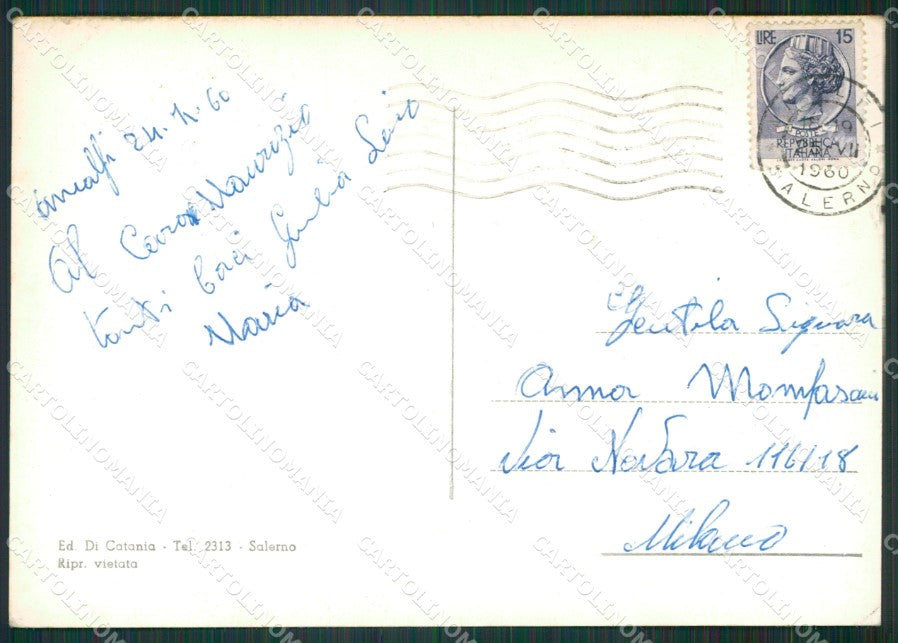 Amalfi 24.
60
Al Caro Maurizio
tanti baci Giulia
Maria
LIRE 15
REPVBBLICA
ITALIANA
1960
SALERNO
Gentila Signora
Anna
Via Novara 116/18
Milano
Ed. Di Catania - Tel. 2313 - Salerno
Ripr. vietata
CARTOLINOMANIA